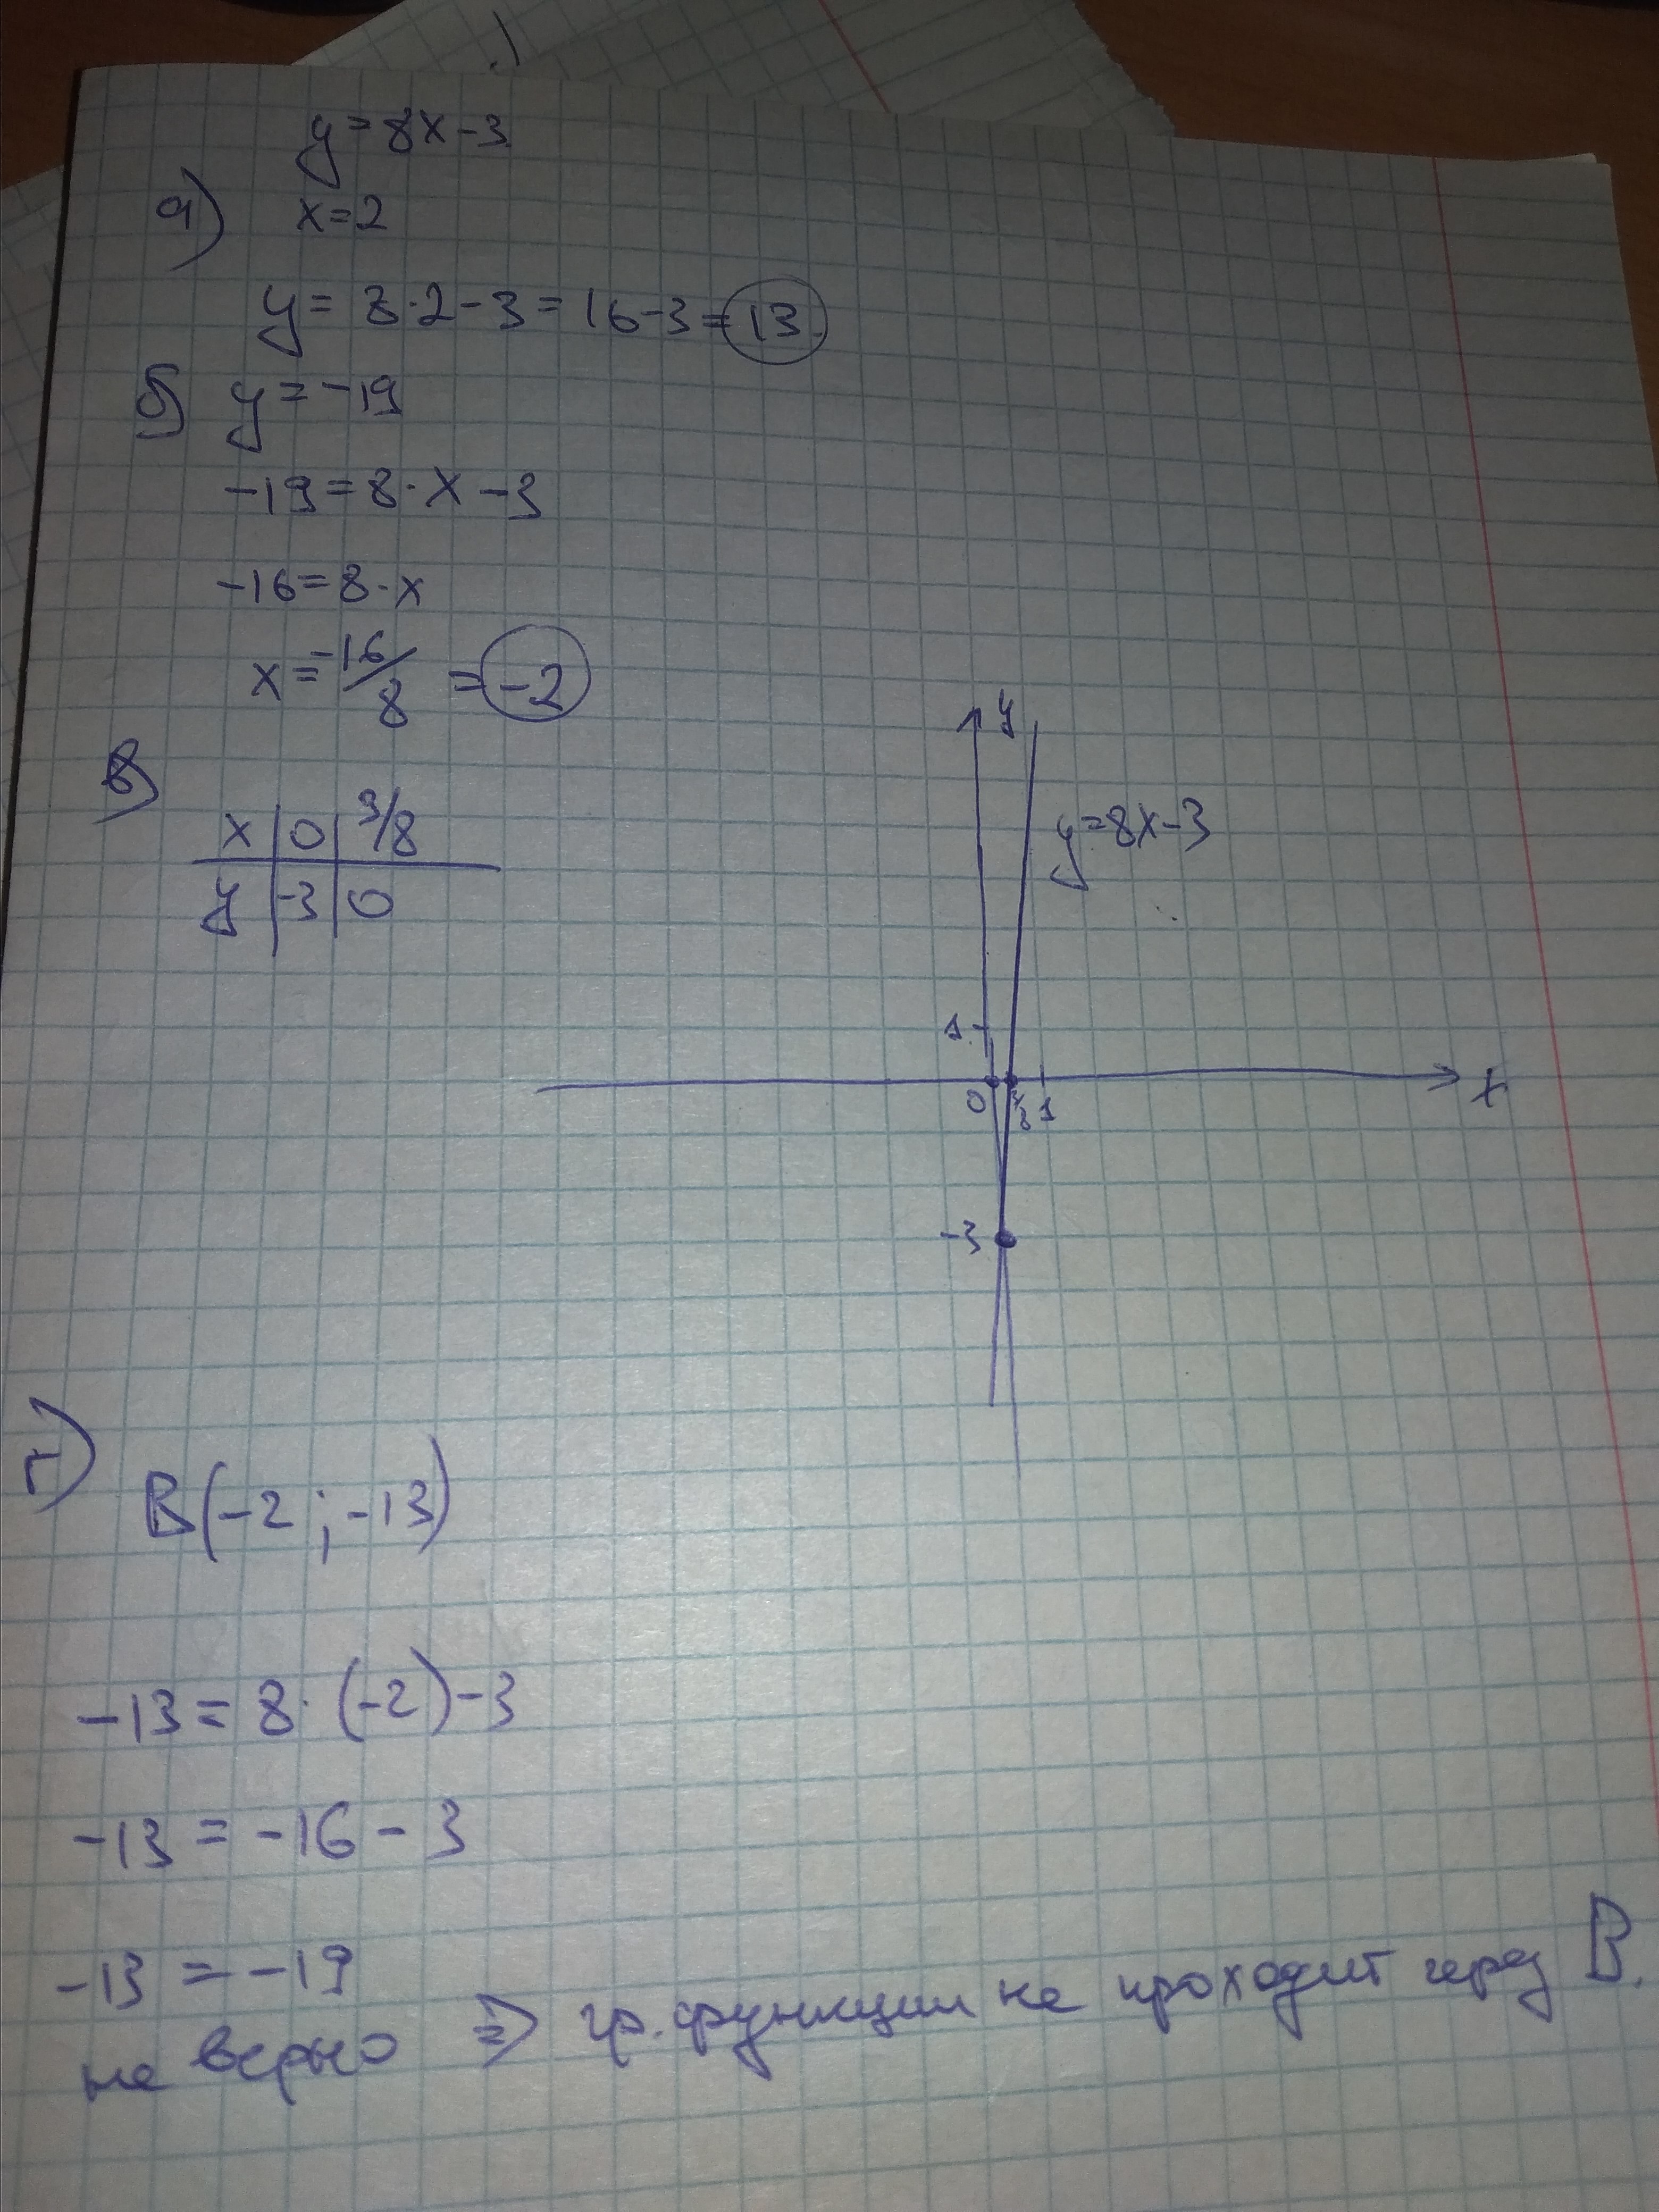 y=8x-3
а) x=2
y=8·2-3=16-3=13
б) y=-19
-19=8·x-3
-16=8·x
x=-16/8=-2
в)
x 0 3/8
y -3 0
y
y=8x-3
1
0 3/8 1
x
-3
г) B(-2;-13)
-13=8·(-2)-3
-13=-16-3
-13=-19
не верно ⇒ гр. функции не проходит через B.